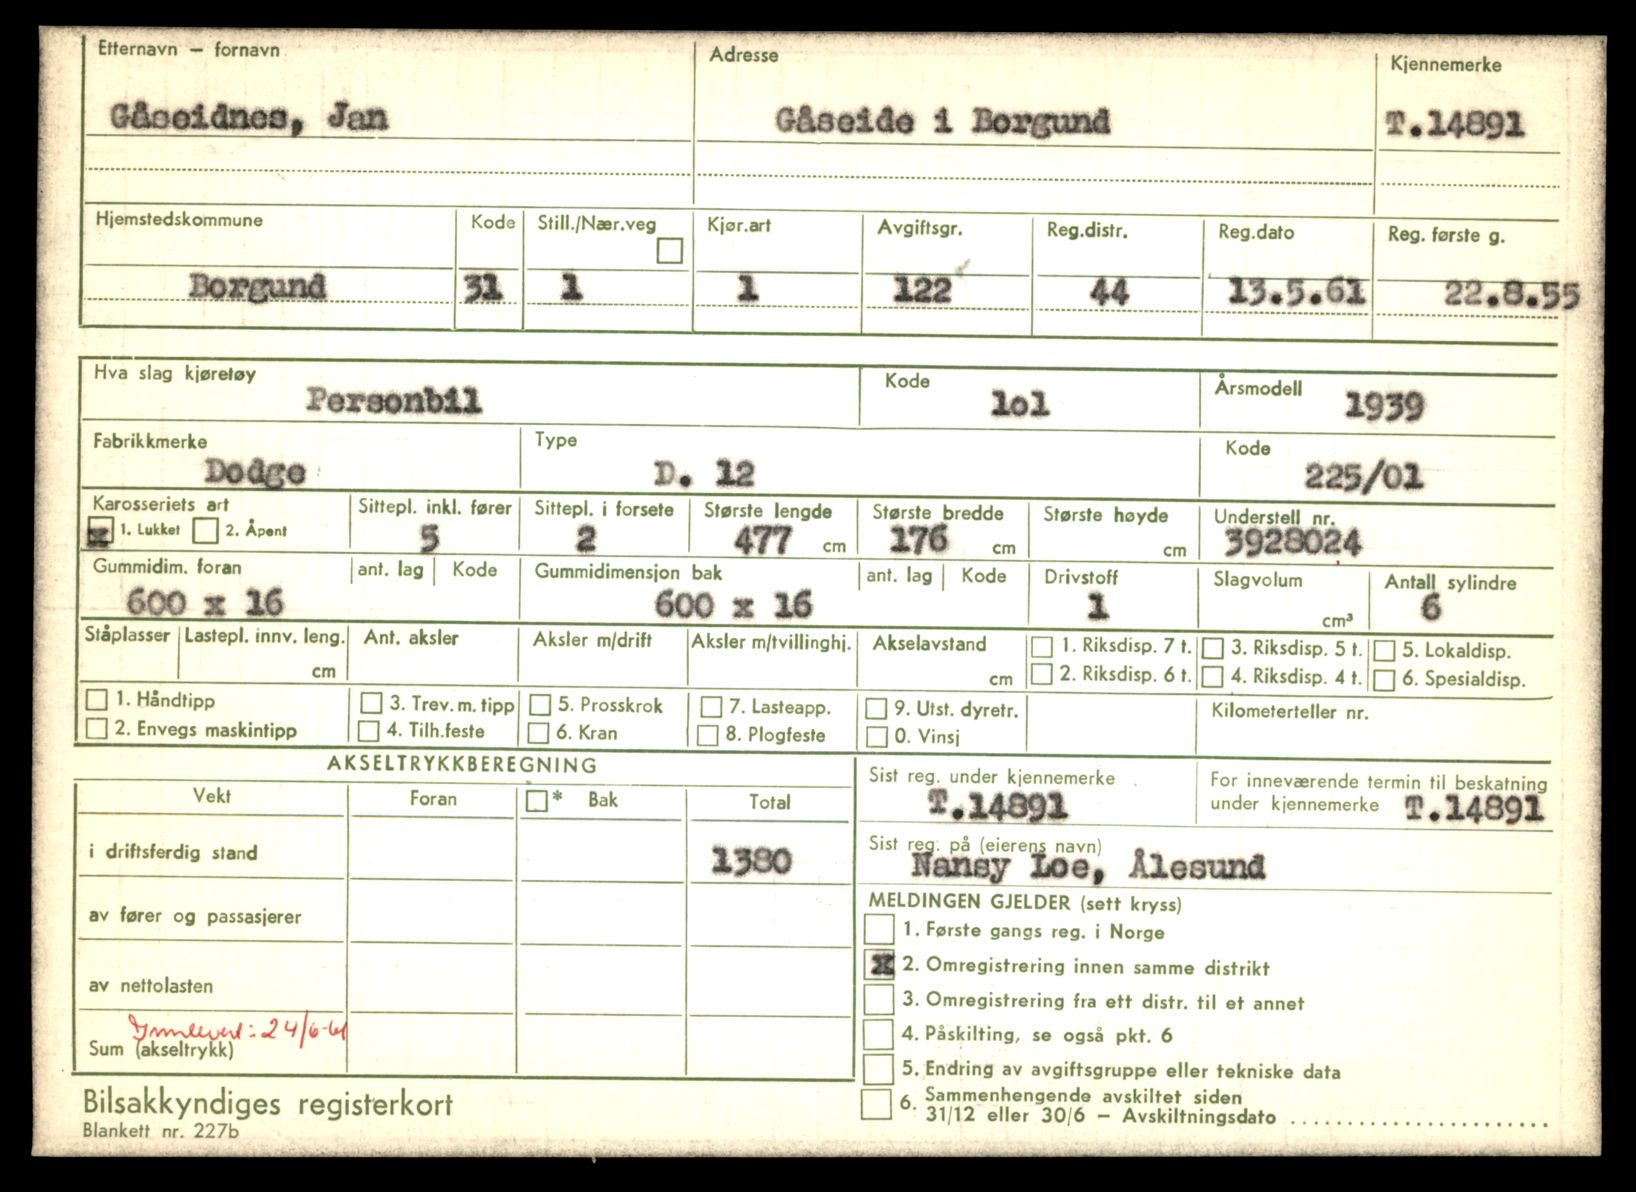 Etternavn – fornavn Adresse Kjennemerke
Gåseidnes, Jan Gåseide i Borgund T.14891
Hjemstedskommune Kode Still./Nær.veg Kjør.art Avgiftsgr. Reg.distr. Reg.dato Reg. første g.
Borgund 31 1 1 122 44 13.5.61 22.8.55
Hva slag kjøretøy Kode Årsmodell
Personbil lol 1939
Fabrikkmerke Type Kode
Dodge D. 12 225/01
Karosseriets art Sittepl. inkl. fører Sittepl. i forsete Største lengde Største bredde Største høyde Understell nr.
x 1. Lukket 2. Åpent 5 2 477 cm 176 cm cm 3928024
Gummidim. foran ant. lag Kode Gummidimensjon bak ant. lag Kode Drivstoff Slagvolum Antall sylindre
600 x 16 600 x 16 1 cm³ 6
Ståplasser Lastepl. innv. leng. Ant. aksler Aksler m/drift Aksler m/tvillinghj. Akselavstand 1. Riksdisp. 7 t. 3. Riksdisp. 5 t. 5. Lokaldisp.
cm cm 2. Riksdisp. 6 t. 4. Riksdisp. 4 t. 6. Spesialdisp.
1. Håndtipp 3. Trev. m. tipp 5. Prosskrok 7. Lasteapp. 9. Utst. dyretr. Kilometerteller nr.
2. Envegs maskintipp 4. Tilh.feste 6. Kran 8. Plogfeste 0. Vinsj
AKSELTRYKKBEREGNING
Vekt Foran * Bak Total
i driftsferdig stand 1380
av fører og passasjerer
av nettolasten
Innlevert: 24/6-61
Sum (akseltrykk)
Sist reg. under kjennemerke For inneværende termin til beskatning
T.14891 under kjennemerke T.14891
Sist reg. på (eierens navn)
Nansy Loe, Ålesund
MELDINGEN GJELDER (sett kryss)
1. Første gangs reg. i Norge
x 2. Omregistrering innen samme distrikt
3. Omregistrering fra ett distr. til et annet
4. Påskilting, se også pkt. 6
5. Endring av avgiftsgruppe eller tekniske data
6. Sammenhengende avskiltet siden
31/12 eller 30/6 – Avskiltningsdato ........................
Bilsakkyndiges registerkort
Blankett nr. 227b